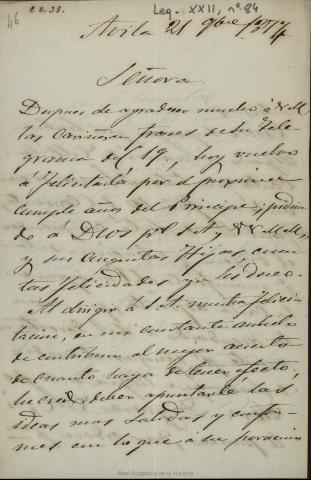 46
C. 11. 38.
Leg. XXII, nº 84
Avila 21 9bre
Señora
Despues de agradecer mucho á V.M.
las cariñosas frases de su tele-
grama del 19, hoy vuelvo
á felicitarla por el proximo
cumple años del Principe; pidien-
do á Dios pr. S.A., VV.MM.,
y sus augustas Hijas cuan-
tas felicidades yo les deseo.
Al dirigir á S.A. mi felici-
tacion, en mi constante anhelo
de contribuir al mejor acierto
de cuanto haya de tener efecto,
he creido deber apuntarle las
ideas mas solidas y confor-
mes con lo que á su
Real Academia de la Historia